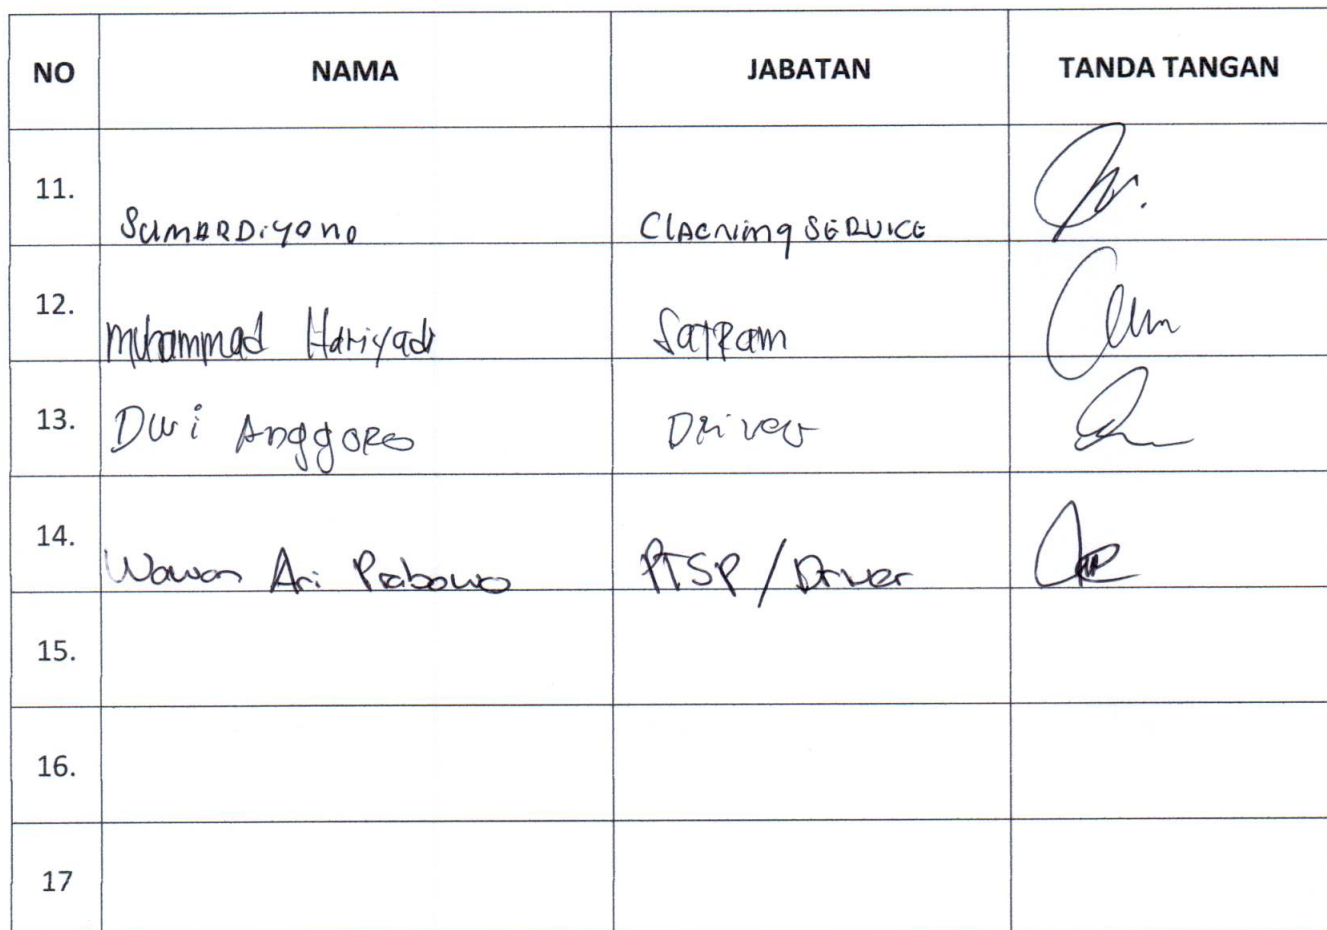 NO NAMA JABATAN TANDA TANGAN
11. SumARDiyono ClAcning SERVICE
12. Muhammad Hariyadi Satpam
13. Dwi Anggoro Driver
14. Wawan Ari Prabowo PTSP / Driver
15.
16.
17